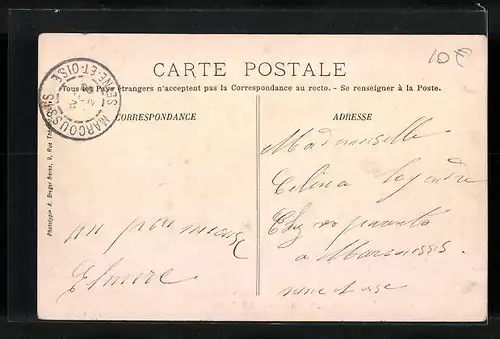 10€
CARTE POSTALE
Tous les Pays étrangers n'acceptent pas la Correspondance au recto. - Se renseigner à la Poste.
MARCOUSSIS
SEINE-ET-OISE
CORRESPONDANCE
ADRESSE
Phototypie A. Breger frères, 9, Rue
Mademoiselle
Celina Lejendre
Chez ses parents
a Marcoussis
seine et oise
un